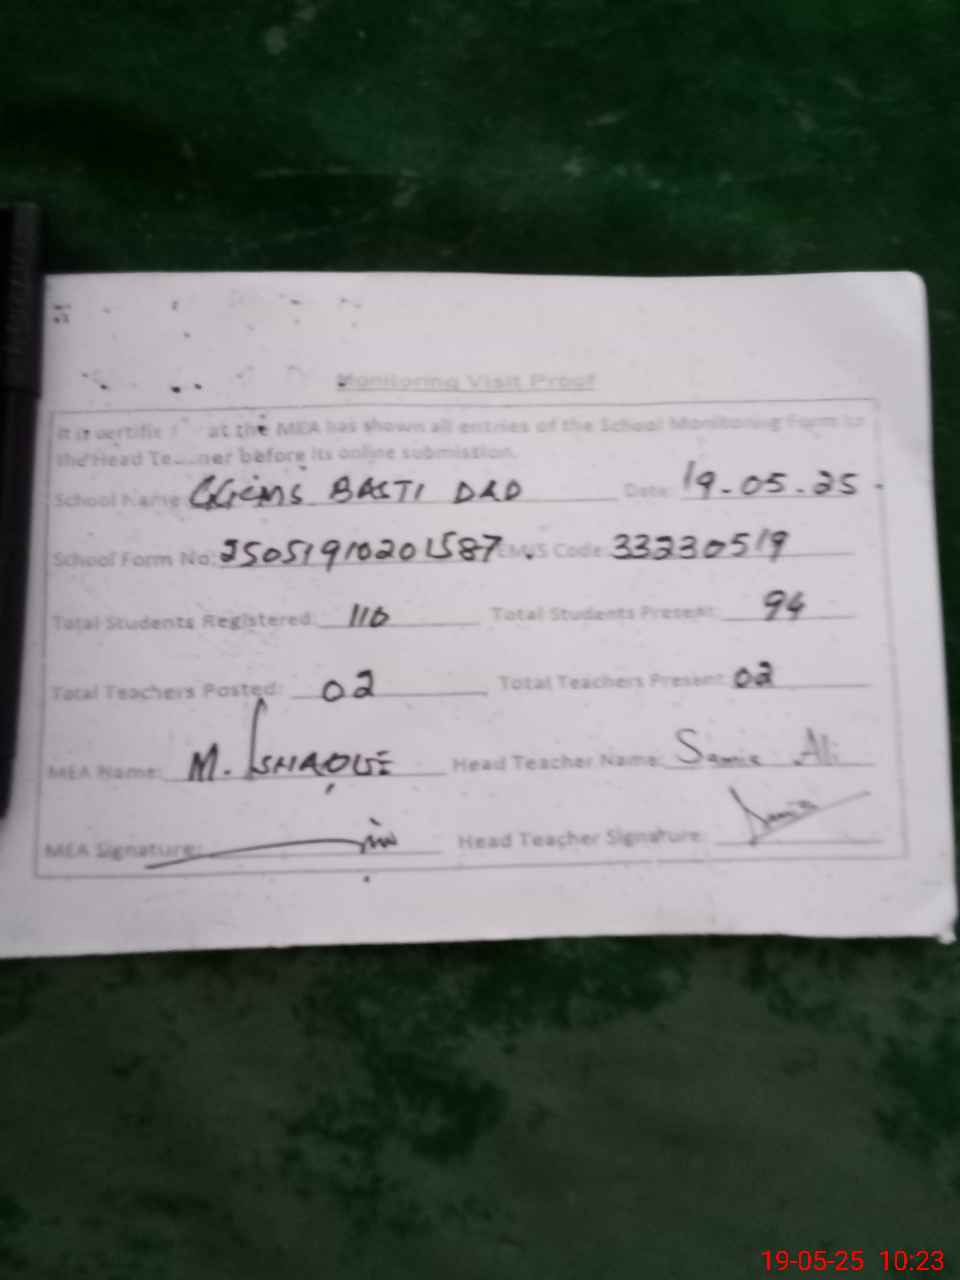 Monitoring Visit Proof
It is certifie at the MEA has shown all entries of the School Monitoring Form to
the Head Te ner before its online submission.
School Name GGCMS BASTI DAD Date: 19-05-25.
School Form No: 25051910201587 EMIS Code: 33230519
Total Students Registered: 110 Total Students Present: 94
Total Teachers Posted: 02 Total Teachers Present: 02
MEA Name: M. ISHAQUE Head Teacher Name: Samia Ali
MEA Signature: Head Teacher Signature: Samia
19-05-25 10:23